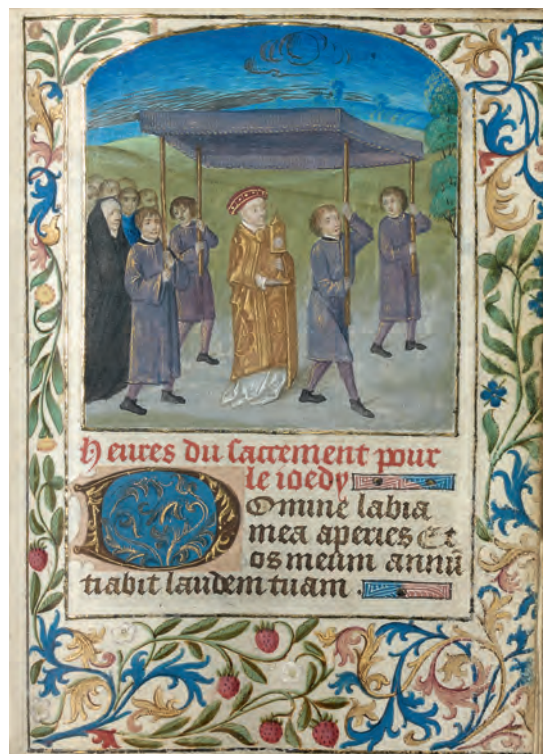 heures du sacrement pour
le ioedy
Domine labia
mea aperies Et
os meum annū
tiabit laudem tuam .